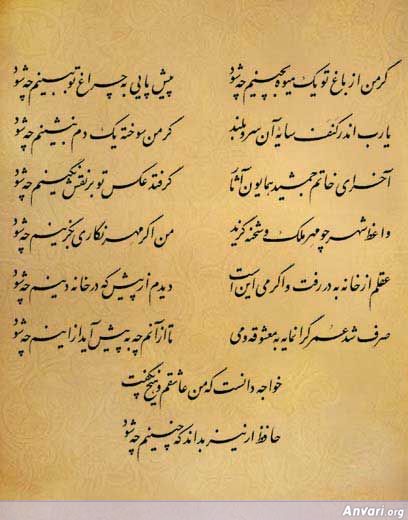 گر من از باغ تو یک میوه بچینم چه شود پیش پایی به چراغ تو ببینم چه شود
یارب اندر کنف سایهٔ آن سرو بلند گر من سوخته یک دم بنشینم چه شود
آخر ای خاتم جمشید همایون آثار گر فتد عکس تو بر نقش نگینم چه شود
واعظ شهر چو مهر ملک و شحنه گزید من اگر مهر نگاری بگزینم چه شود
عقلم از خانه به در رفت و اگر می این است دیدم از پیش که در خانه دینم چه شود
صرف شد عمر گرانمایه به معشوقه و می تا از آنم چه به پیش آید از اینم چه شود
خواجه دانست که من عاشقم و هیچ نگفت
حافظ ار نیز بداند که چنینم چه شود
Anvari.org